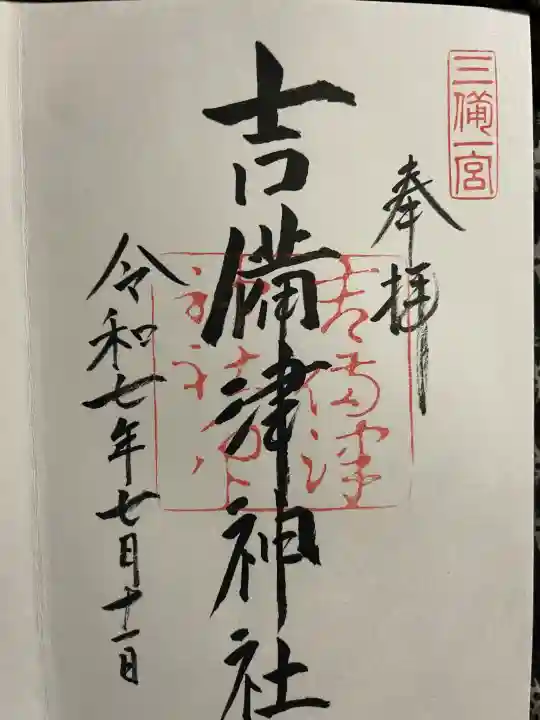 三備一宮
奉拝
吉備津神社
令和七年七月十一日